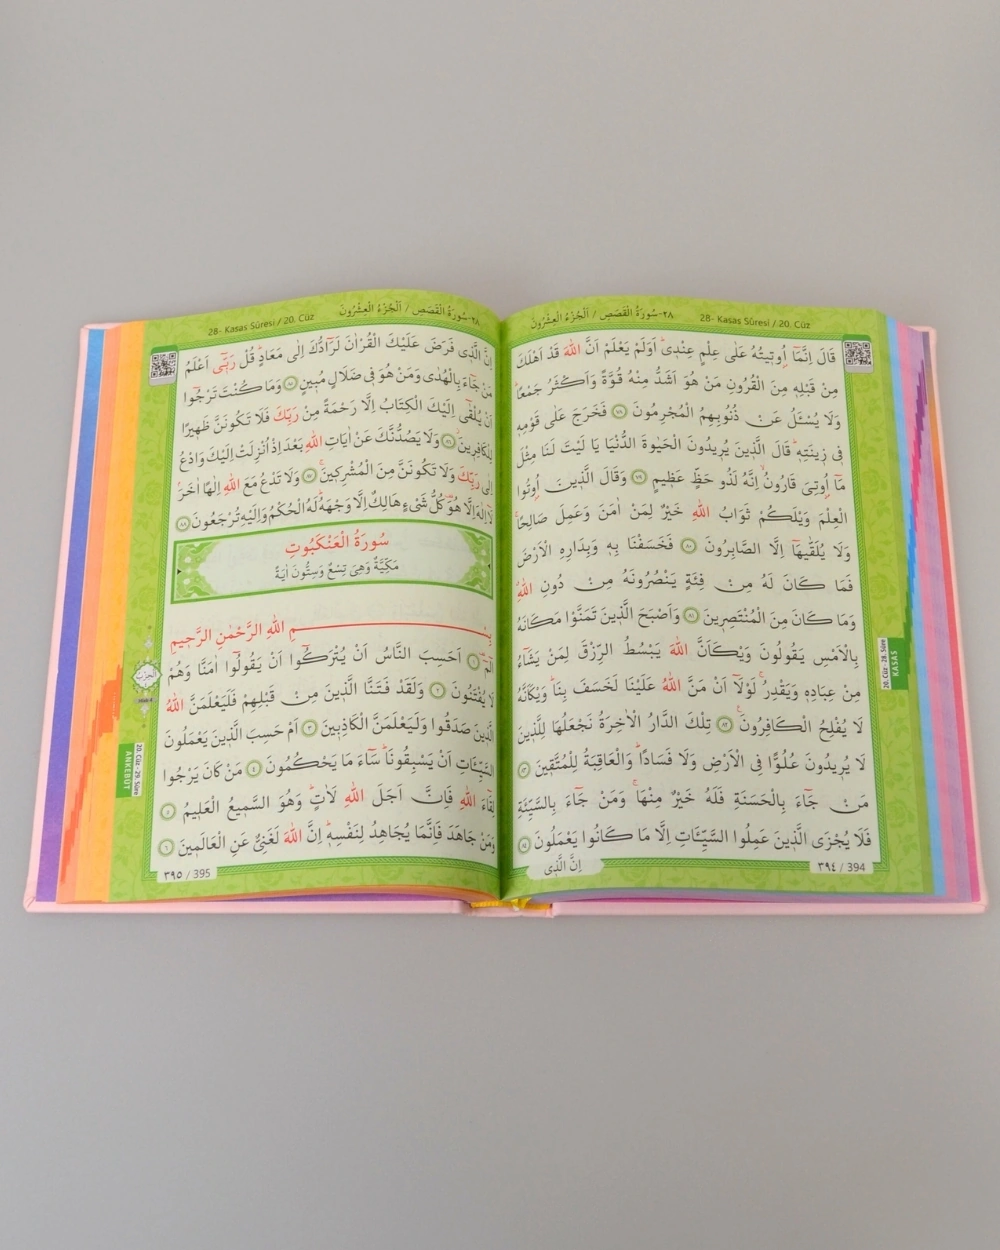 ٢٨-سُورَةُ الْقَصَصِ / اَلْجُزْءُ الْعِشْرُونَ
28- Kasas Sûresi / 20. Cüz
قَالَ اِنَّمَٓا اُو۫ت۪يتُهُ عَلٰى عِلْمٍ عِنْد۪يۜ اَوَلَمْ يَعْلَمْ اَنَّ اللّٰهَ قَدْ اَهْلَكَ
مِنْ قَبْلِه۪ مِنَ الْقُرُونِ مَنْ هُوَ اَشَدُّ مِنْهُ قُوَّةً وَاَكْثَرُ جَمْعًاۜ
وَلَا يُسْـَٔلُ عَنْ ذُنُوبِهِمُ الْمُجْرِمُونَ ﴿٧٨﴾ فَخَرَجَ عَلٰى قَوْمِه۪
ف۪ي ز۪ينَتِه۪ۜ قَالَ الَّذ۪ينَ يُر۪يدُونَ الْحَيٰوةَ الدُّنْيَا يَا لَيْتَ لَنَا مِثْلَ
مَٓا اُو۫تِيَ قَارُونُۙ اِنَّهُ لَذُو حَظٍّ عَظ۪يمٍ ﴿٧٩﴾ وَقَالَ الَّذ۪ينَ اُو۫تُوا
الْعِلْمَ وَيْلَكُمْ ثَوَابُ اللّٰهِ خَيْرٌ لِمَنْ اٰمَنَ وَعَمِلَ صَالِحًاۚ
وَلَا يُلَقّٰيهَٓا اِلَّا الصَّابِرُونَ ﴿٨٠﴾ فَخَسَفْنَا بِه۪ وَبِدَارِهِ الْاَرْضَ
فَمَا كَانَ لَهُ مِنْ فِئَةٍ يَنْصُرُونَهُ مِنْ دُونِ اللّٰهِۗ
وَمَا كَانَ مِنَ الْمُنْتَصِر۪ينَ ﴿٨١﴾ وَاَصْبَحَ الَّذ۪ينَ تَمَنَّوْا مَكَانَهُ
بِالْاَمْسِ يَقُولُونَ وَيْكَاَنَّ اللّٰهَ يَبْسُطُ الرِّزْقَ لِمَنْ يَشَٓاءُ
مِنْ عِبَادِه۪ وَيَقْدِرُۚ لَوْلَٓا اَنْ مَنَّ اللّٰهُ عَلَيْنَا لَخَسَفَ بِنَاۜ وَيْكَاَنَّهُ
لَا يُفْلِحُ الْكَافِرُونَ۟ ﴿٨٢﴾ تِلْكَ الدَّارُ الْاٰخِرَةُ نَجْعَلُهَا لِلَّذ۪ينَ
لَا يُر۪يدُونَ عُلُوًّا فِي الْاَرْضِ وَلَا فَسَادًاۜ وَالْعَاقِبَةُ لِلْمُتَّق۪ينَ ﴿٨٣﴾
مَنْ جَٓاءَ بِالْحَسَنَةِ فَلَهُ خَيْرٌ مِنْهَاۚ وَمَنْ جَٓاءَ بِالسَّيِّئَةِ
فَلَا يُجْزَى الَّذ۪ينَ عَمِلُوا السَّيِّـَٔاتِ اِلَّا مَا كَانُوا يَعْمَلُونَ ﴿٨٤﴾
اِنَّ الَّذ۪ي
٣٩٤ / 394
20. Cüz - 28. Sure
KASAS
٢٨-سُورَةُ الْقَصَصِ / اَلْجُزْءُ الْعِشْرُونَ
28- Kasas Sûresi / 20. Cüz
اِنَّ الَّذ۪ي فَرَضَ عَلَيْكَ الْقُرْاٰنَ لَرَٓادُّكَ اِلٰى مَعَادٍۜ قُلْ رَبّ۪ٓي اَعْلَمُ
مَنْ جَٓاءَ بِالْهُدٰى وَمَنْ هُوَ ف۪ي ضَلَالٍ مُب۪ينٍ ﴿٨٥﴾ وَمَا كُنْتَ تَرْجُٓوا
اَنْ يُلْقٰٓى اِلَيْكَ الْكِتَابُ اِلَّا رَحْمَةً مِنْ رَبِّكَ فَلَا تَكُونَنَّ ظَه۪يرًا
لِلْكَافِر۪ينَۘ ﴿٨٦﴾ وَلَا يَصُدُّنَّكَ عَنْ اٰيَاتِ اللّٰهِ بَعْدَ اِذْ اُنْزِلَتْ اِلَيْكَ وَادْعُ
اِلٰى رَبِّكَ وَلَا تَكُونَنَّ مِنَ الْمُشْرِك۪ينَۚ ﴿٨٧﴾ وَلَا تَدْعُ مَعَ اللّٰهِ اِلٰهًا اٰخَرَۢ
لَٓا اِلٰهَ اِلَّا هُوَ۠ كُلُّ شَيْءٍ هَالِكٌ اِلَّا وَجْهَهُۜ لَهُ الْحُكْمُ وَاِلَيْهِ تُرْجَعُونَ ﴿٨٨﴾
سُورَةُ الْعَنْكَبُوتِ
مَكِّيَّةٌ وَهِيَ تِسْعٌ وَسِتُّونَ اٰيَةً
بِسْمِ اللّٰهِ الرَّحْمٰنِ الرَّح۪يمِ
الٓمٓۜ ﴿١﴾ اَحَسِبَ النَّاسُ اَنْ يُتْرَكُٓوا اَنْ يَقُولُٓوا اٰمَنَّا وَهُمْ
لَا يُفْتَنُونَ ﴿٢﴾ وَلَقَدْ فَتَنَّا الَّذ۪ينَ مِنْ قَبْلِهِمْ فَلَيَعْلَمَنَّ اللّٰهُ
الَّذ۪ينَ صَدَقُوا وَلَيَعْلَمَنَّ الْكَاذِب۪ينَ ﴿٣﴾ اَمْ حَسِبَ الَّذ۪ينَ يَعْمَلُونَ
السَّيِّـَٔاتِ اَنْ يَسْبِقُونَاۜ سَٓاءَ مَا يَحْكُمُونَ ﴿٤﴾ مَنْ كَانَ يَرْجُوا
لِقَٓاءَ اللّٰهِ فَاِنَّ اَجَلَ اللّٰهِ لَاٰتٍۜ وَهُوَ السَّم۪يعُ الْعَل۪يمُ ﴿٥﴾
وَمَنْ جَاهَدَ فَاِنَّمَا يُجَاهِدُ لِنَفْسِه۪ۜ اِنَّ اللّٰهَ لَغَنِيٌّ عَنِ الْعَالَم۪ينَ ﴿٦﴾
٣٩٥ / 395
20. Cüz - 29. Sure
ANKEBUT